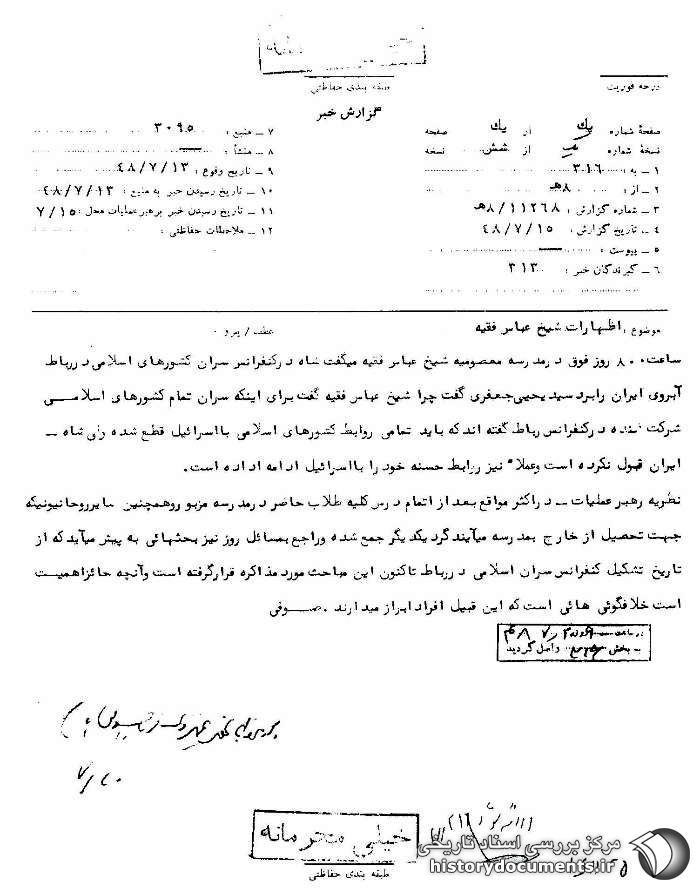 درجه فوریت
طبقه بندی حفاظتی
گزارش خبر
صفحه شماره یک از یک صفحه
نسخه شماره از شش نسخه
۱ – به : ۳۱۶
۲ – از : ۸هـ
۳ – شماره گزارش : ۸/۱۱۲۶۸هـ
۴ – تاریخ گزارش : ۴۸/۷/۱۵
۵ – پیوست :
۶ – گیرندگان خبر : ۳۱۳
۷ – منبع : ۳۰۹۵
۸ – منشأ :
۹ – تاریخ وقوع : ۴۸/۷/۱۳
۱۰ – تاریخ رسیدن خبر به منبع : ۴۸/۷/۱۳
۱۱ – تاریخ رسیدن خبر برهبر عملیات محل : ۷/۱۵
۱۲ – ملاحظات حفاظتی :
موضوع : اظهارات شیخ عباس فقیه
عطف / پیرو
ساعت ۰۸۰۰ روز فوق در مدرسه معصومیه شیخ عباس فقیه میگفت شاه در کنفرانس سران کشورهای اسلامی در رباط
آبروی ایران را برد سید یحیی جعفری گفت چرا شیخ عباس فقیه گفت برای اینکه سران تمام کشورهای اسلامی
شرکت کننده در کنفرانس رباط گفته اند که باید تمامی روابط کشورهای اسلامی با اسرائیل قطع شده ولی شاه –
ایران قبول نکرده است وعملاً نیز روابط حسنه خود را با اسرائیل ادامه داده است.
نظریه رهبر عملیات – در اکثر مواقع بعد از اتمام درس کلیه طلاب حاضر در مدرسه مزبور وهمچنین سایر روحانیونیکه
جهت تحصیل از خارج بمدرسه میآیند گرد یکدیگر جمع شده و راجع بمسائل روز نیز بحثهائی به پیش میآید که از
تاریخ تشکیل کنفرانس سران اسلامی در رباط تاکنون این مباحث مورد مذاکره قرار گرفته است وآنچه حائز اهمیت
است خلافگوئی هائی است که این قبیل افراد ابراز میدارند . صوفی
واصل گردید
۷/۲۰
خیلی محرمانه
طبقه بندی حفاظتی
مرکز بررسی اسناد تاریخی
historydocuments.ir